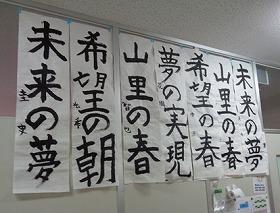 未来の夢
山里の春
希望の春
夢の実現
山里の春
希望の朝
未来の夢